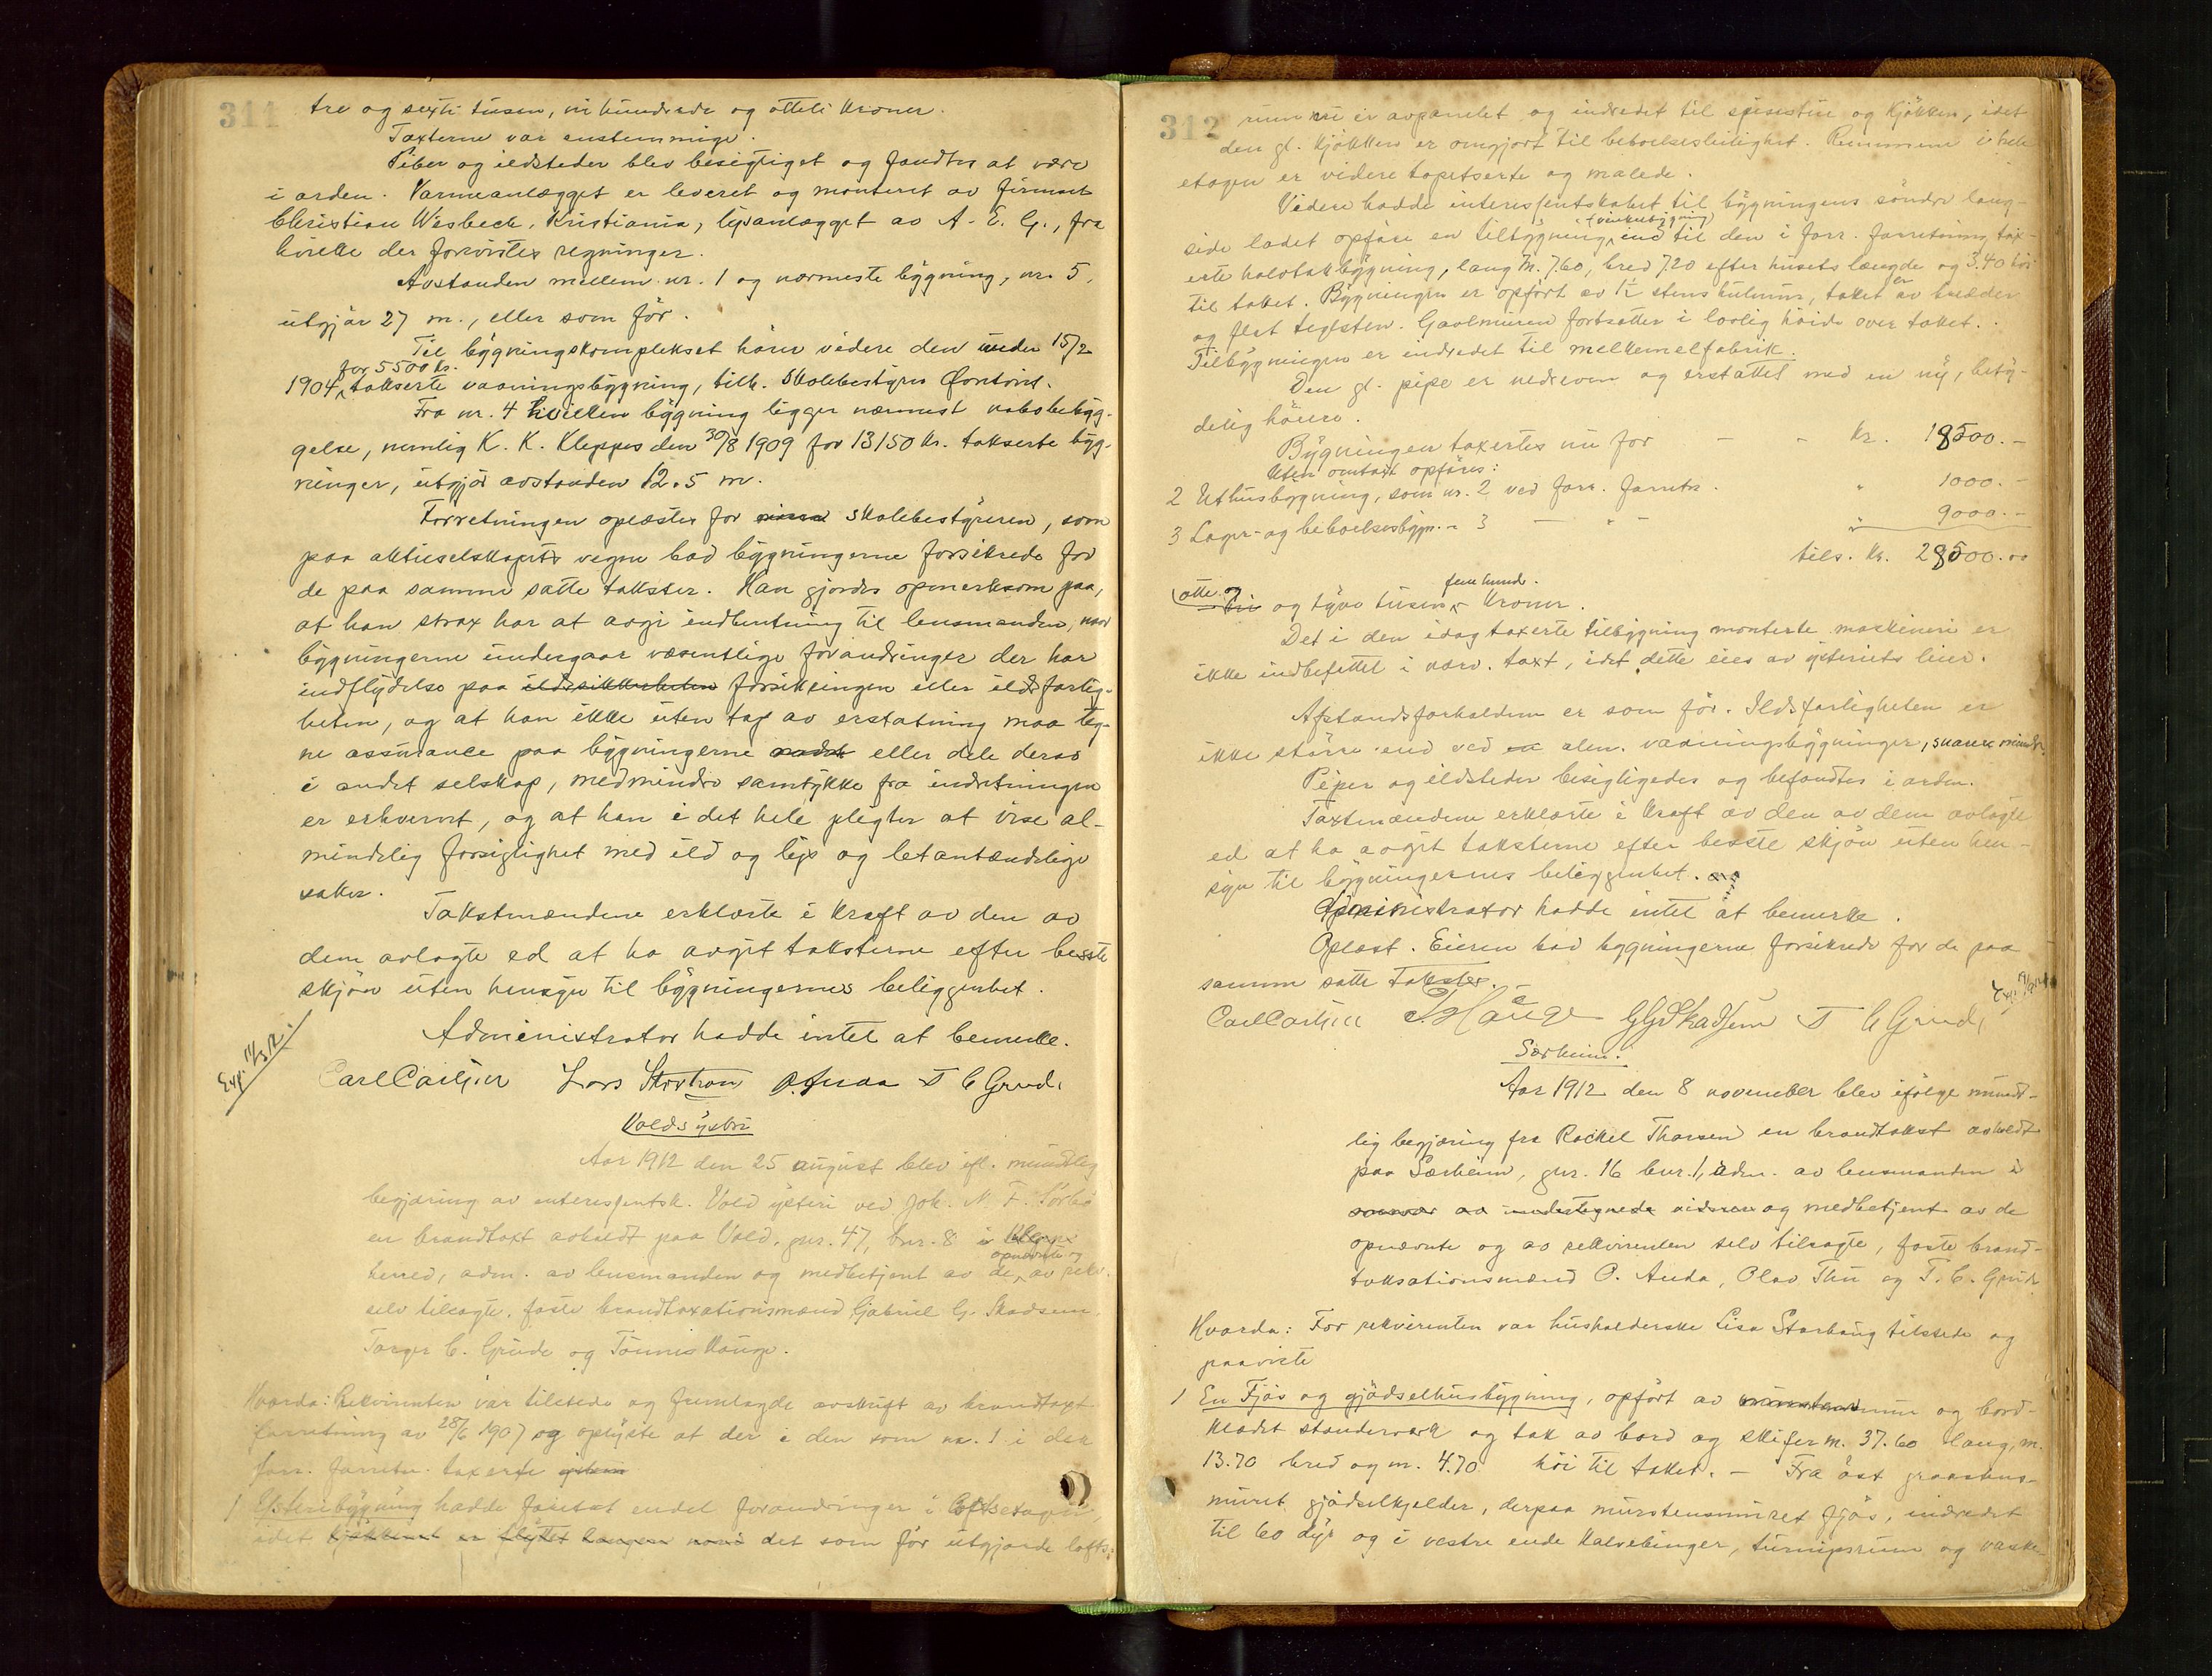 311
tre og sexti tusen, ni hundrede og otteti kroner.
Taxterne var enstemmige.
Piber og ildsteder blev besigtiget og fandtes at være
i orden. Varmeanlægget er leveret og monteret av firmaet
Christian Wisbech, Kristiania, lysanlægget av A. E. G., fra
hvilke der forevistes regninger.
Avstanden mellem nr. 1 og nærmeste bygning, nr. 5,
utgjør 27 m., eller som før.
Til bygningskomplekset hører videre den under 15/2
for 5500 kr.
1904, takserte vaaningsbygning, tilh. skolebestyrer
Fra nr. 4 hvilken bygning ligger nærmest nabobebyg-
gelse, nemlig K. K. Kleppes den 30/8 1909 for 13150 kr. takserte byg-
ninger, utgjør avstanden 12.5 m.
Forretningen oplæstes for skolebestyreren, som
paa aktieselskapets vegne bad bygningerne forsikrede for
de paa samme satte takster. Han gjordes opmerksom paa,
at han strax har at avgi indberetning til lensmanden, naar
bygningerne undergaar væsentlige forandringer der har
indflydelse paa ildsikkerheten forsikringen eller ildsfarlig-
heten, og at han ikke uten tap av erstatning maa teg-
ne assurance paa bygningerne eller dele deraf
i andet selskap, medmindre samtykke fra indretningen
er erhvervet, og at han i det hele plegter at vise al-
mindelig forsigtighet med ild og lys og letantændelige
saker.
Takstmændene erklærte i kraft av den av
dem avlagte ed at ha avgit taksterne efter beste
skjøn uten hensyn til bygningernes beliggenhet.
Administrator hadde intet at bemerke.
Exp. 11/3 12.
Carl Carlsen Lars Storhaug O. Anda T C Grude
Volds ysteri
Aar 1912 den 25 august blev ifl. mundtlig
begjæring av interessentsk. Vold ysteri ved Joh. N. F. Sørbø
en brandtaxt avholdt paa Vold, gnr. 47, bnr. 8 i Klepp
opnævnte og
herred, adm. av lensmanden og medbetjent av de, av rekv.
selv tilsagte, faste brandtaxationsmænd Gabriel G. Skadsem,
Torger C. Grude og Tønnes Hauge.
Hvorda: Rekvirenten var tilstede og fremlagde avskrift av brandtaxt
forretning av 28/6 1907 og oplyste at der i den som nr. 1 i den
forr. forretn. taxerte
1 Ysteribygning hadde foretat endel forandringer i loftsetagen,
idet kjøkkenet er flyttet det som før utgjorde lofts-
312
rum nu er avpanelet og indredet til spisestue og kjøkken, idet
den gl. kjøkken er omgjort til beboelsesleilighet. Rummene i hele
etagen er videre tapetserte og malede.
Videre hadde interessentskabet til bygningens søndre lang-
(vinkelbygning)
side ladet opføre en tilbygning, ind til den i forr. forretning tax-
erte halvtakbygning, lang m. 7.60, bred 7.20 efter husets længde og 3.40 høi
til taket. Bygningen er opført av 1½ stens hulmur, taket er av træder
og flat teglsten. Gavlmuren fortsætter i lovlig høide over taket.
Tilbygningen er indredet til melkemelfabrik.
Den gl. pipe er nedreven og erstattet med en ny, bety-
delig høiere.
Bygningen taxertes nu for — - kr. 18500.-
Uten omtaxt opføres:
2 Uthusbygning, som nr. 2 ved forr. forretn. " 1000.-
3 Lager- og beboelsesbygn. - 3 — " - " 9000.-
tils. kr. 28500.00
otte og fem hund.
tri og tyve tusen kroner.
Det i den idag taxerte tilbygning monterte maskineri er
ikke indbefattet i nærv. taxt, idet dette eies av ysteriets leier.
Afstandsforholdene er som før. Ildsfarligheten er
ikke større end ved alm. vaaningsbygninger, snarere mindre.
Piper og ildsteder besigtigedes og befandtes i orden.
Taxtmændene erklærte i kraft av den av dem avlagte
ed at ha avgit taksterne efter beste skjøn uten hen-
syn til bygningernes beliggenhet.
Administrator hadde intet at bemerke.
Oplæst. Eieren bad bygningerne forsikrede for de paa
samme satte takster.
Carl Carlsen T. Hauge G G Skadsem T C Grude
Særheim.
Aar 1912 den 8 november blev ifølge mundt-
lig begjæring fra Rackel Thorsen en brandtakst avholdt
paa Særheim, gnr. 16 bnr. 1, adm. av lensmanden i
og medbetjent av de
opnævnte og av rekvirenten selv tilsagte, faste brand-
taksationsmænd O. Anda, Olav Thu og T. C. Grude
Hvorda: For rekvirenten var husholderske Lisa Storhaug tilstede og
paaviste
1 En Fjøs og gjødselhusbygning, opført av mur og bord-
klædt standerverk og tak av bord og skifer m. 37.60 lang, m.
13.70 bred og m. 4.70 høi til taket. — Fra øst graastens-
muret gjødselkjelder, derpaa murstensmuret fjøs, indredet
til 60 dyr og i vestre ende kalvebinger, turnipsrum og vaske-